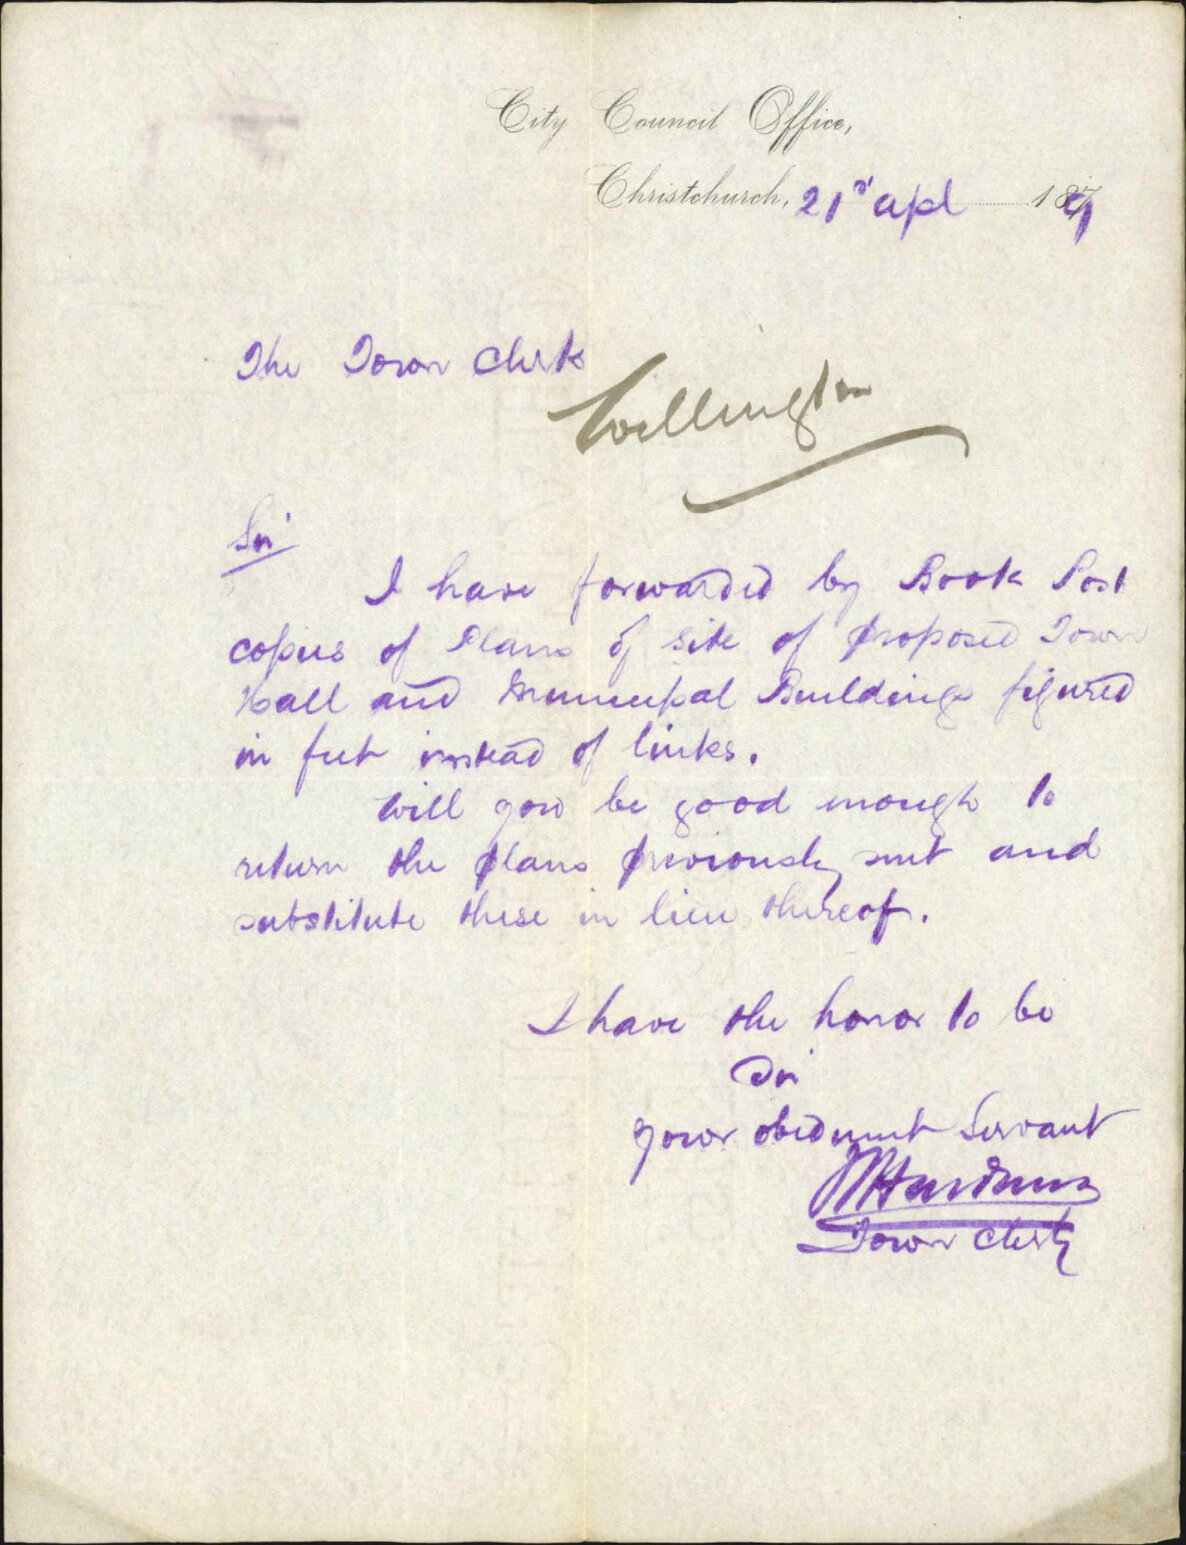 City Council Office,
Christchurch, 21st Apl 1879
The Town Clerk
Wellington
Sir
I have forwarded by Book Post
copies of Plans of site of proposed Town
Hall and Municipal Buildings figured
in feet instead of links.
Will you be good enough to
return the plans previously sent and
substitute these in lieu thereof.
I have the honor to be
Sir
your obedient Servant
Town Clerk